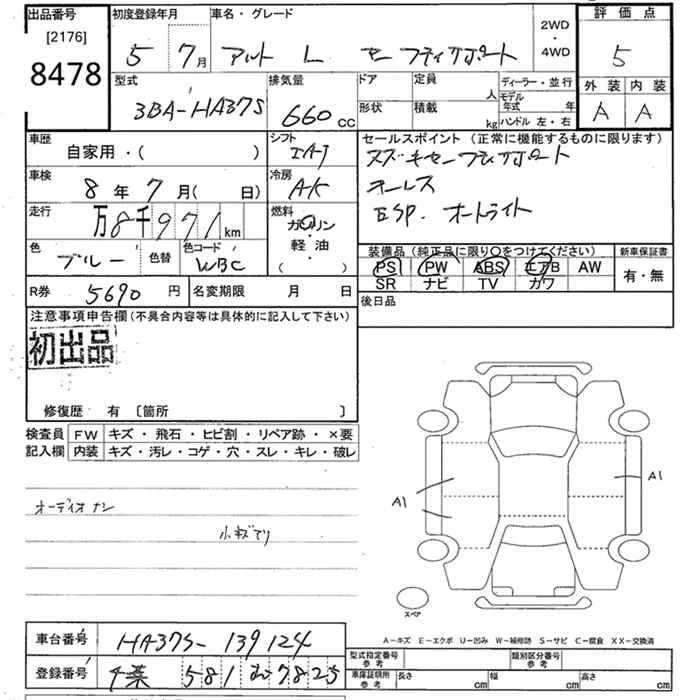 出品番号
[2176]
8478
初度登録年月
5年 7月
車名・グレード
アルト L セーフティサポート
2WD
・
4WD
評価点
5
外装 内装
A A
型式
3BA-HA37S
排気量
660 cc
ドア
定員
人
形状
積載
kg
ディーラー・並行
モデル年式 年
ハンドル 左・右
車歴
自家用・( )
シフト
セールスポイント（正常に機能するものに限ります）
スズキセーフティサポート
キーレス
ESP. オートライト
車検
8年 7月( 日)
冷房
走行
万8千971km
燃料
ガソリン
・
軽油
( )
色
ブルー
色替
色コード
WBC
装備品（純正品に限り○をつけてください）
PS PW ABS エアB AW
SR ナビ TV カワ
新車保証書
有・無
R券 5690円
名変期限 月 日
後日品
注意事項申告欄（不具合内容等は具体的に記入して下さい）
初出品
修復歴 有 〔箇所 〕
検査員記入欄
FW キズ・飛石・ヒビ割・リペア跡・×要
内装 キズ・汚レ・コゲ・穴・スレ・キレ・破レ
オーディオナシ
小キズ有り
A1
A1
スペア
A－キズ E－エクボ U－凹み W－補修跡 S－サビ C－腐食 XX－交換済
車台番号 HA37S-139124
登録番号 千葉 581 む 7825
型式指定番号参考
類別区分番号参考
車庫証明所参考 長さ cm 幅 cm 高さ cm